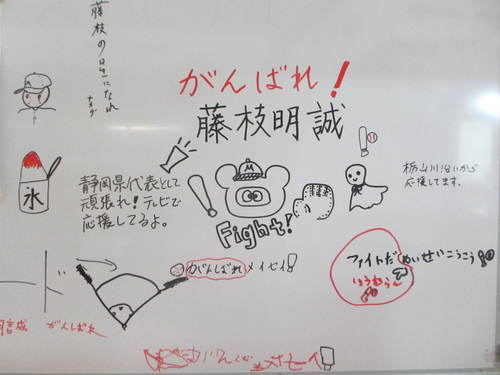 藤枝の星になれ
がんばれ!
藤枝明誠
氷
静岡県代表として
頑張れ!テレビで
応援してるよ。
M
Fight!
栃山川沿いから
応援してます。
がんばれメイセイ!
ファイトだ めいせいこうこう!
ほうむらん
明誠 がんばれ